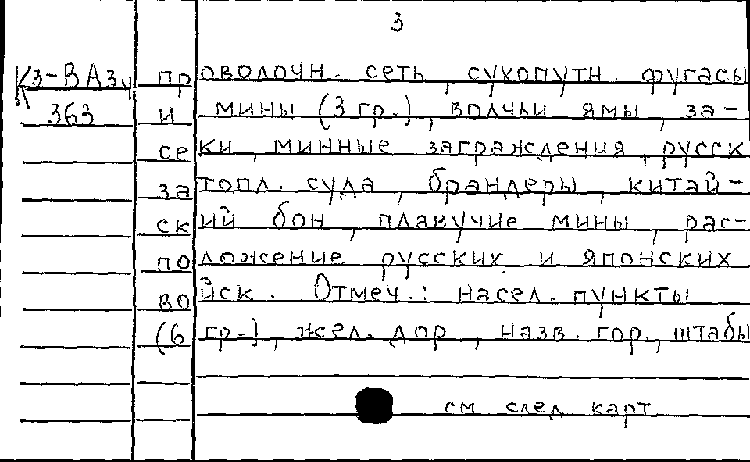 3
К3-ВАзи проволочн. сеть, сухопутн. фугасы
363 и мины (3 гр.), волчьи ямы, за-
секи, минные заграждения, русск
затопл. суда, брандеры, китай-
ский бон, плавучие мины, рас-
положение русских и японских
войск. Отмеч.: насел. пункты
(6 гр.), жел. дор., назв. гор., штабы
см след карт